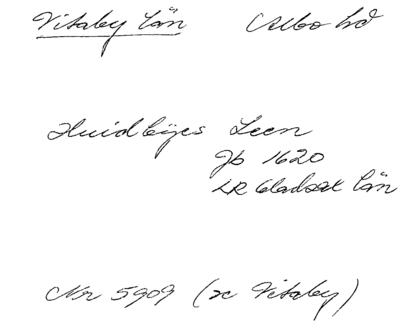 Vitaby län Albo hd
Huidbÿes Leen
Jb 1620
LR Gladsax län
Nr 5909 (sc Vitaby)